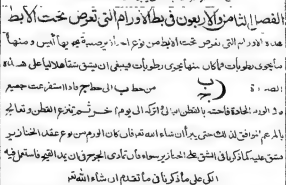 الفصل الثامن والاربعون في بط الاورام التي تعرض تحت الابط
هذه الاورام التي تعرض تحت الابط من نوع الخنازير صلبة يحويها كيس ومنها
ما يحوي رطوبات فما كان منها يحوي رطوبات فينبغي ان يشق شقا هلاليا على هذه
الصورة من خط ب الى خط ج فاذا استفرغت جميع
ما في الورم من المادة فاحشه بالقطن البالي واتركه الى يوم آخر ثم تنزع القطن وتعالجه
بالمرهم الموافق لذلك حتى يبرأ ان شاء الله تعالى فان كان الورم من نوع عقد الخنازير
فشق عليه كما ذكرنا في الشق على الخنازير سواء فان تمادى الجرح في ان يمد القيح فاستعمل فيه
الكي على ما ذكرنا في ما تقدم ان شاء الله تعالى